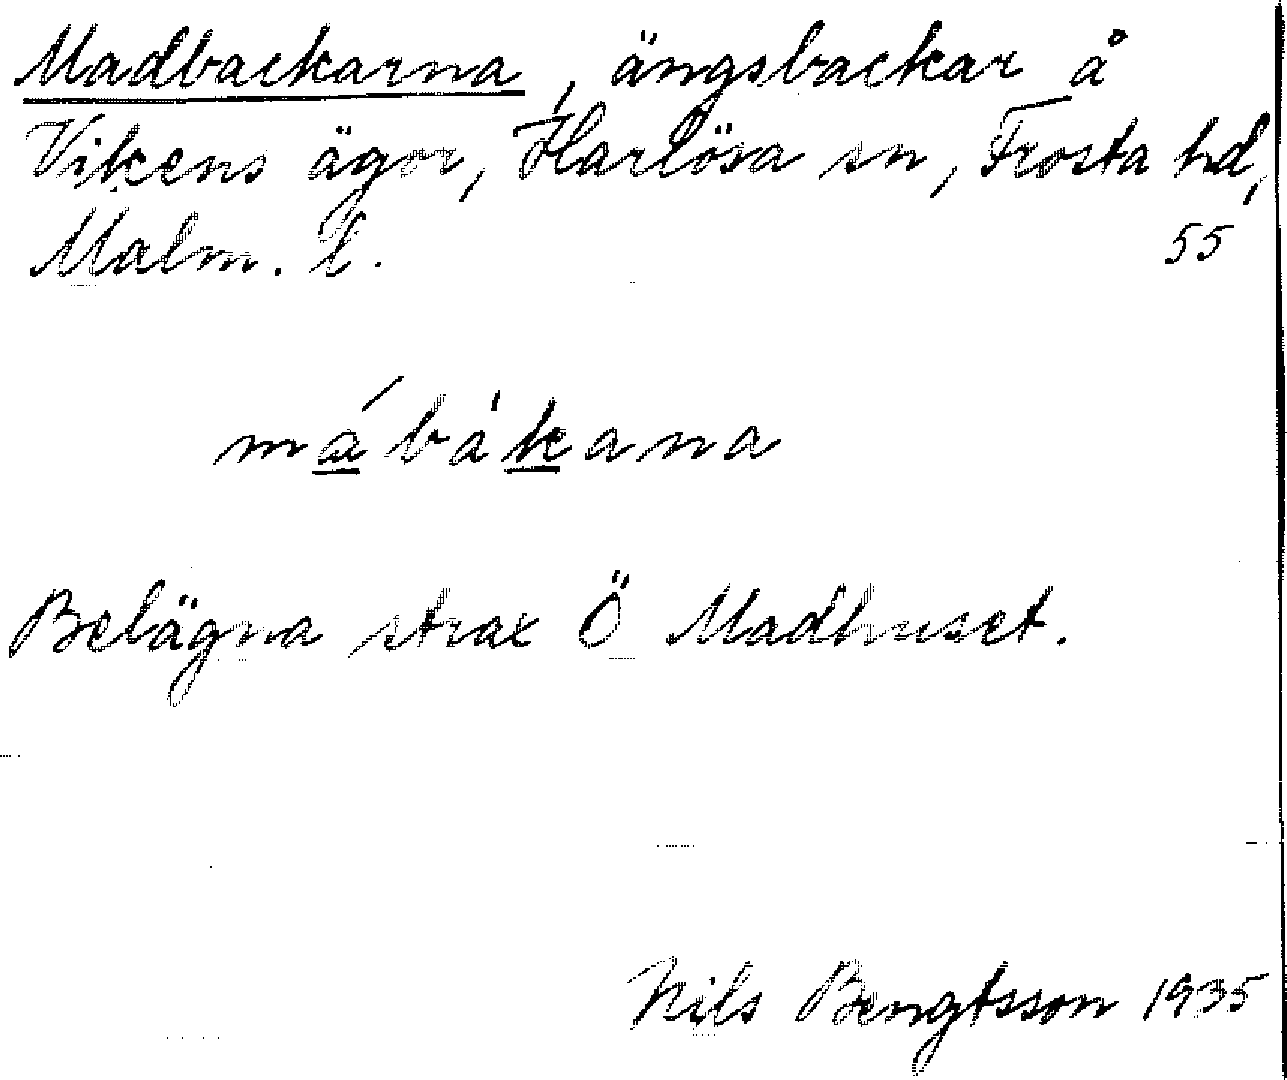 Madbackarna, ängsbackar å
Vikens ägor, Harlösa sn, Frosta hd,
Malm. l.
55
mábàkana
Belägna strax Ö Madhuset.
Nils Bengtsson 1935